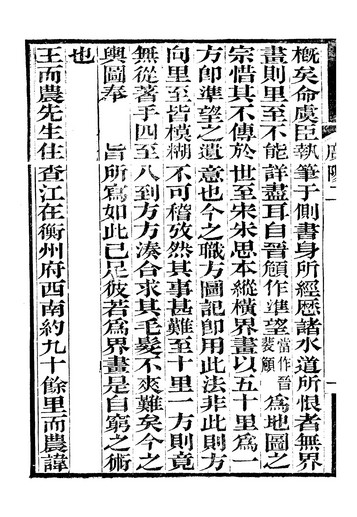 廣陽二
概矣命虞臣執筆于側書身所經歷諸水道所恨者無界
畫則里至不能詳盡耳自晉顧作準望當作晉裴顧為地圖之
宗惜其不傳於世至朱朱思本縱橫界畫以五十里為一
方即準望之遺意也今之職方圖記即用此法非此則方
向里至皆模糊不可稽攷然其事甚難至十里一方則竟
無從著手四至八到方方湊合求其毛髮不爽難矣今之
輿圖奉旨所寫如此已足彼若為界畫是自窮之術
也
王而農先生住查江在衡州府西南約九十餘里而農諱